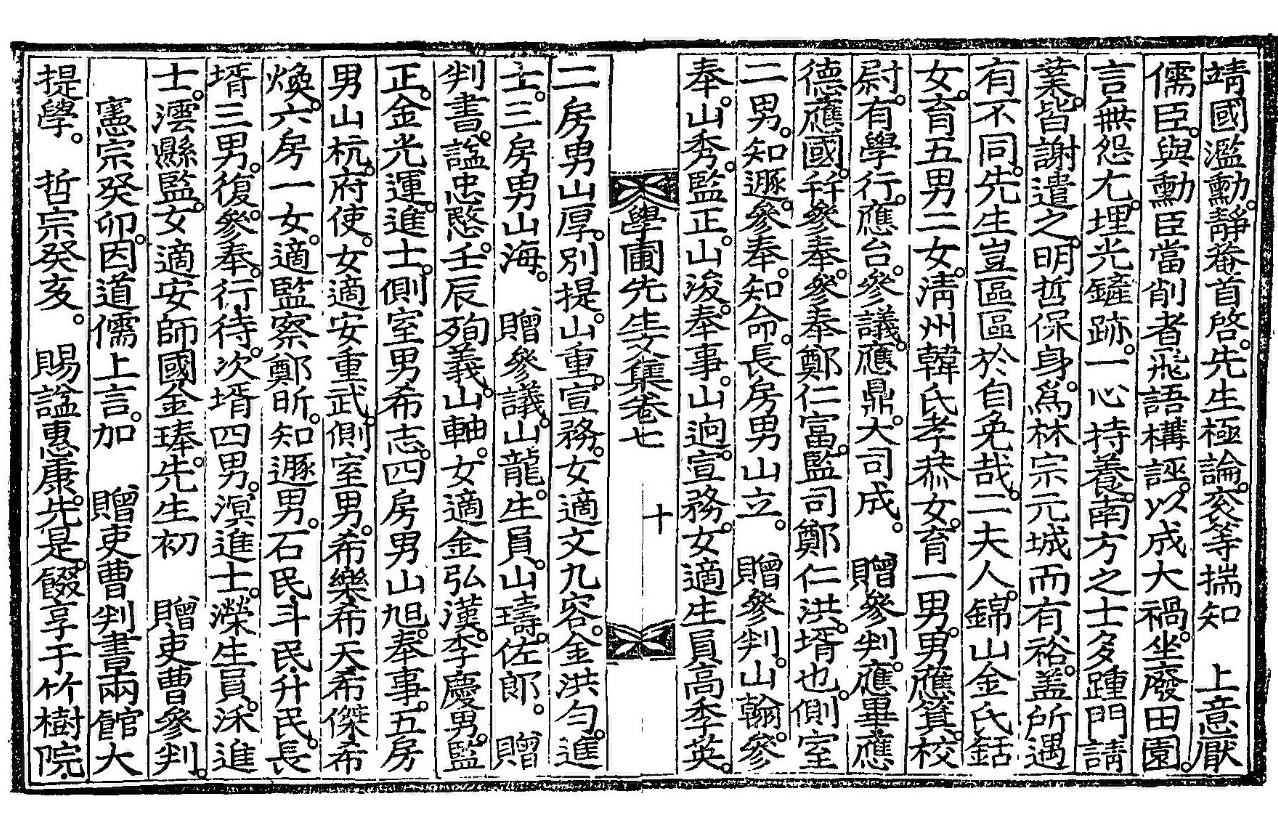 靖國濫勳。靜菴首啓。先生極論。袞等揣知 上意厭
儒臣。與勳臣當削者飛語構誣。以成大禍。坐廢田園。
言無怨尤。埋光鏟跡。一心持養。南方之士多踵門請
業。皆謝遣之。明哲保身。爲林宗元城而有裕。蓋所遇
有不同。先生豈區區於自免哉。二夫人。錦山金氏銛
女。育五男二女。淸州韓氏孝恭女。育一男。男應箕。校
尉。有學行。應台。參議。應鼎。大司成。 贈參判。應畢應
德應國。幷參奉。參奉鄭仁富。監司鄭仁洪。壻也。側室
二男。知遯。參奉。知命。長房男山立。 贈參判。山翰。參
奉。山秀。監正。山浚。奉事。山逈。宣務。女適生員高季英。
學圃先生文集卷七 十
二房男山厚。別提。山重。宣務。女適文九容。金洪勻。進
士。三房男山海。 贈參議。山龍。生員。山璹。佐郞。 贈
判書。諡忠愍。壬辰殉義。山軸。女適金弘漢。李慶男。監
正。金光運。進士。側室男希志。四房男山旭。奉事。五房
男山杭。府使。女適安重武。側室男。希樂希天希傑希
煥。六房一女。適監察鄭昕。知遯男。石民斗民升民。長
壻三男。復。參奉。行。待。次壻四男。溟。進士。濴。生員。沭。進
士。澐。縣監。女。適安師國金琫。先生初 贈吏曹參判。
憲宗癸卯。因道儒上言。加 贈吏曹判書兩館大
提學。 哲宗癸亥。 賜諡惠康。先是。餟享于竹樹院。